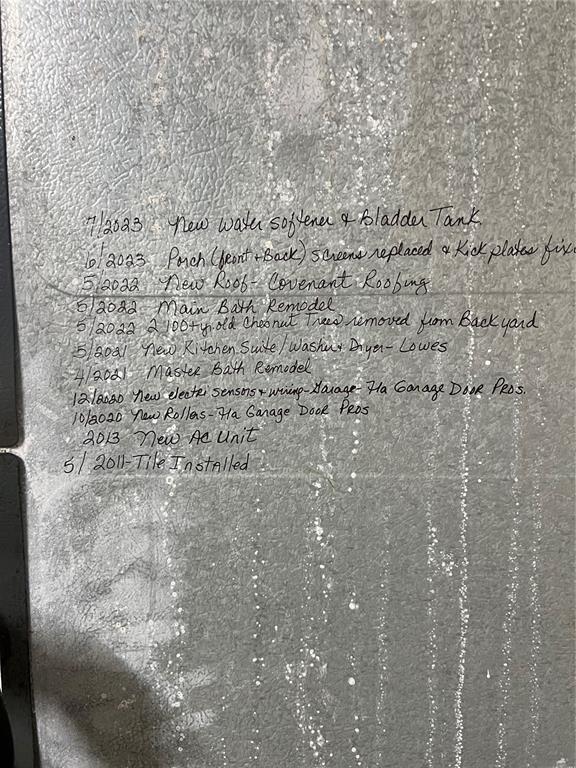 7/2023 New Water Softener & Bladder Tank
6/2023 Porch (front + Back) screens replaced & Kick plates
5/2022 New Roof - Covenant Roofing
5/2022 Main Bath Remodel
5/2022 2 100+ y. old Chesnut Trees removed from Back yard
5/2021 New Kitchen Suite/Washer & Dryer - Lowes
4/2021 Master Bath Remodel
12/2020 New electri sensors & wiring - Garage - Fla Garage Door Pros.
10/2020 New Rollers - Fla Garage Door Pros
2013 New AC Unit
5/2011 - Tile Installed